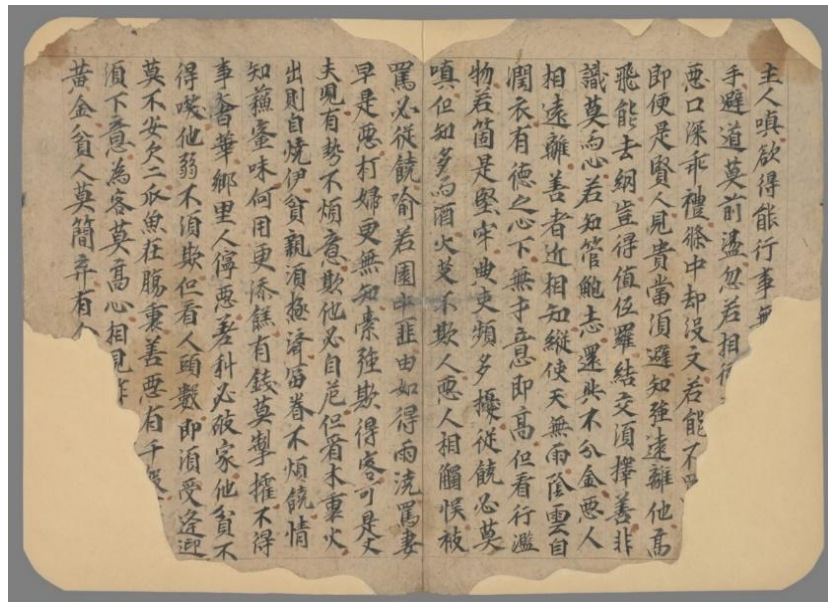 主人嗔欲得能行事無
手避道莫前盪忽若相
惡口深乖禮條中却沒文若能不
即便是賢人見貴當須避知強遠離他高
飛能去網豈得值伍羅結交須擇善非
識莫向心若知管鮑志還共不分金惡人
相遠離善者近相知縱使天無雨陰雲自
潤衣有德之心下無才意即高但看行濫
物若箇是堅牢典吏頻多擾從饒必莫
嗔但知多与酒火艾不欺人惡人相觸悮被
罵必從饒喻若園中韮由如得雨澆罵妻
早是惡打婦更無知索強欺得客可是丈
夫兒有勢不煩意欺他必自危但看木裏火
出則自燒伊貧親須極濟富眷不煩饒情
知蘓蜜味何用更添餻有錢莫掣攉不得
事奢華鄉里人儜惡差科必破家他貧不
得咲他弱不須欺但看人頭數即須受逢迎
莫不安欠二瓜魚在腸裏善惡有千
須下意為客莫高心相見
黃金貧人莫簡弃有